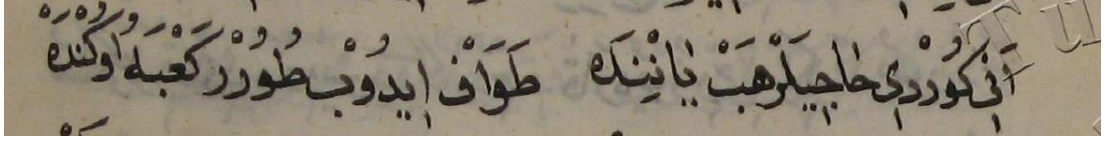 آنِى كُورْدِى حَاجِيلَرْ هَبْ يَانِنْدَه طَوَافْ اِيدُوبْ طُورُرْ كَعْبَه اُوكُنْدَه